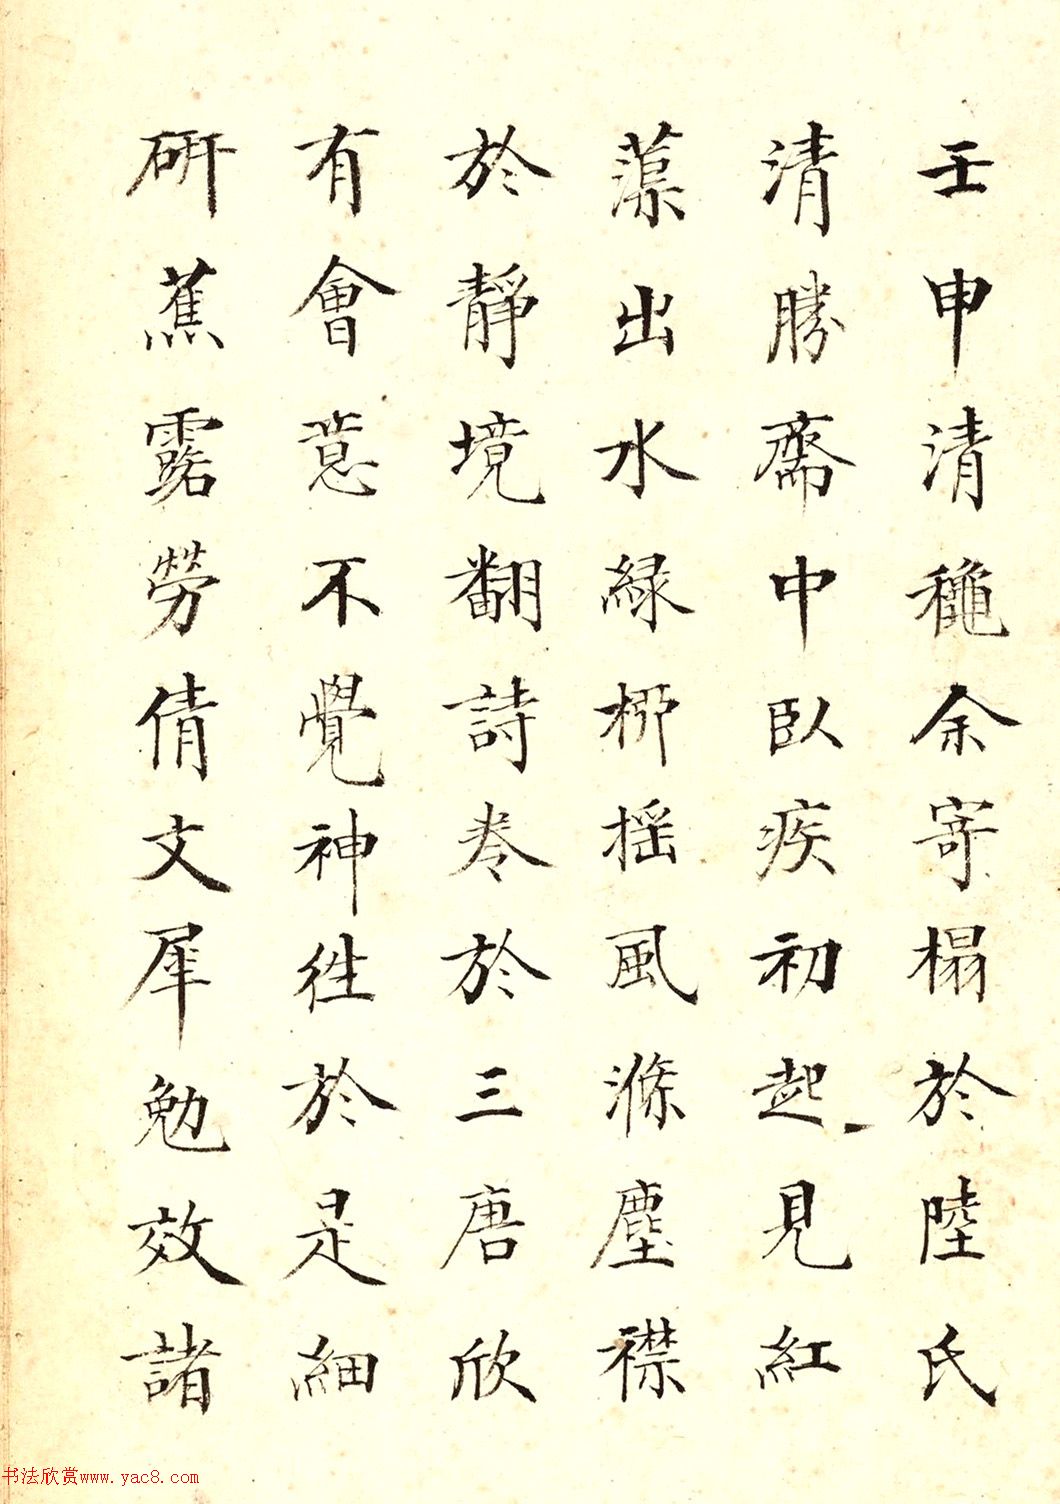 壬申清穐余寄榻於陸氏
清勝齋中臥疾初起見紅
蕖出水緑栁揺風滌塵襟
於静境翻詩卷於三唐欣
有會意不覺神往於是細
研蕉露勞倩文犀勉效諸
书法欣赏www.yac8.com